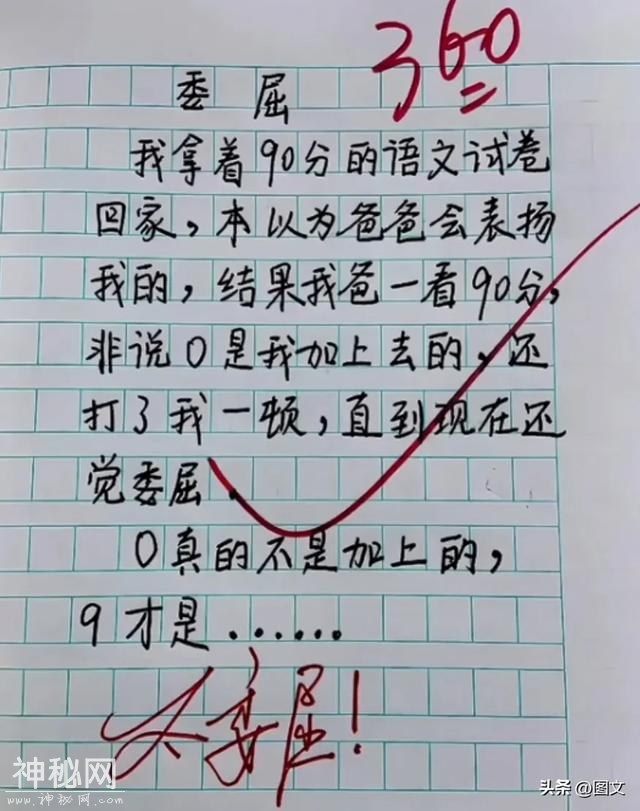 360
委屈
我拿着90分的语文试卷
回家,本以为爸爸会表扬
我的,结果我爸一看90分,
非说0是我加上去的,还
打了我一顿,直到现在还
觉委屈.
0真的不是加上的,
9才是......
太委屈!
神秘网
www.神秘网.com
头条 @图文